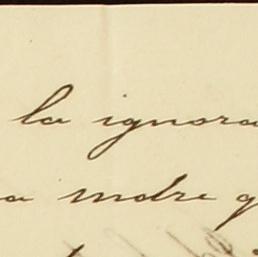 la ignora
a madre q